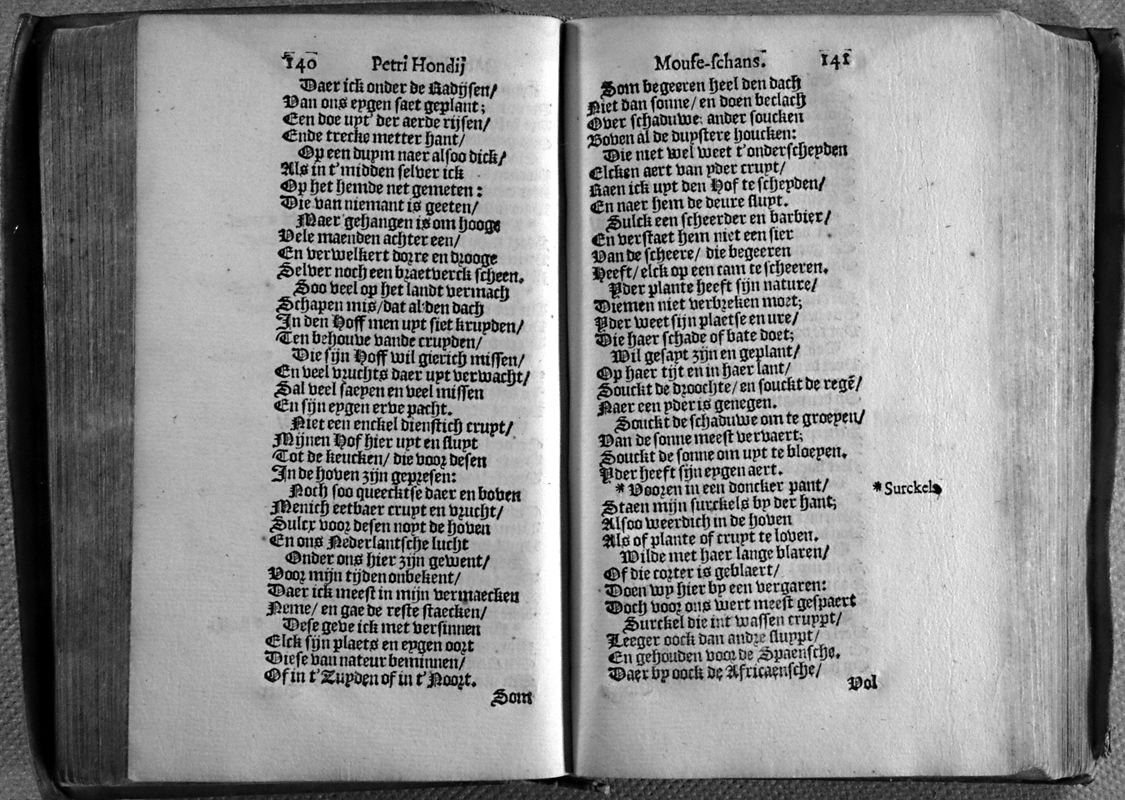 140 Petri Hondij
Daer ick onder de Radijsen/
Van ons eygen saet geplant;
Een doe uyt der aerde rijsen/
Ende trecke metter hant/
Op een duym naer alsoo dick/
Als in t'midden selver ick
Op het hemde net gemeten:
Die van niemant is geeten/
Maer gehangen is om hooge
Vele maenden achter een/
En verwelkert dorre en drooge
Selver noch een braetverck scheen.
Soo veel op het landt vermach
Schapen mis/dat al den dach
In den Hoff men uyt siet kruyden/
Ten behouve vande cruyden/
Die sijn Hoff wil gierich missen/
En veel vruchts daer uyt verwacht/
Sal veel saeyen en veel missen
En sijn eygen erve pacht.
Niet een enckel dienstich cruyt/
Mijnen Hof hier uyt en sluyt
Tot de keucken/ die voor desen
In de hoven zijn gepresen:
Noch soo queecktse daer en boven
Menich eetbaer cruyt en vrucht/
Sulcx voor desen noyt de hoven
En ons Nederlantsche lucht
Onder ons hier zijn gewent/
Voor mijn tijden onbekent/
Daer ick meest in mijn vermaecken
Neme/ en gae de reste staecken/
Dese geve ick met versinnen
Elck sijn plaets en eygen oort
Diese van nateur beminnen/
Of in t'Zuyden of in t'Noort.
Som
Mouse-schans. 141
Som begeeren heel den dach
Niet dan sonne/ en doen beclach
Over schaduwe: ander soucken
Boven al de duystere houcken:
Die niet wel weet t'onderscheyden
Elcken aert van yder cruyt/
Raen ick uyt den Hof te scheyden/
En naer hem de deure sluyt.
Sulck een scheerder en barbier/
En verstaet hem niet een sier
Van de scheere/ die begeeren
Heeft/ elck op een cam te scheeren.
Yder plante heeft sijn nature/
Diemen niet verbreken moet;
Yder weet sijn plaetse en ure/
Die haer schade of bate doet;
Wil gesayt zijn en geplant/
Op haer tijt en in haer lant/
Souckt de droochte/ en souckt de regē/
Naer een yder is genegen.
Souckt de schaduwe om te groeyen/
Van de sonne meest vervaert;
Souckt de sonne om uyt te bloeyen.
Yder heeft sijn eygen aert.
* Vooren in een doncker pant/
Staen mijn surckels by der hant;
Alsoo weerdich in de hoven
Als of plante of cruyt te loven.
Wilde met haer lange blaren/
Of die corter is geblaert/
Doen wy hier by een vergaren:
Doch voor ons wert meest gespaert
Surckel die int wassen cruypt/
Leeger oock dan andre sluypt/
En gehouden voor de Spaensche.
Daer by oock de Africaensche/
Vol
* Surckels